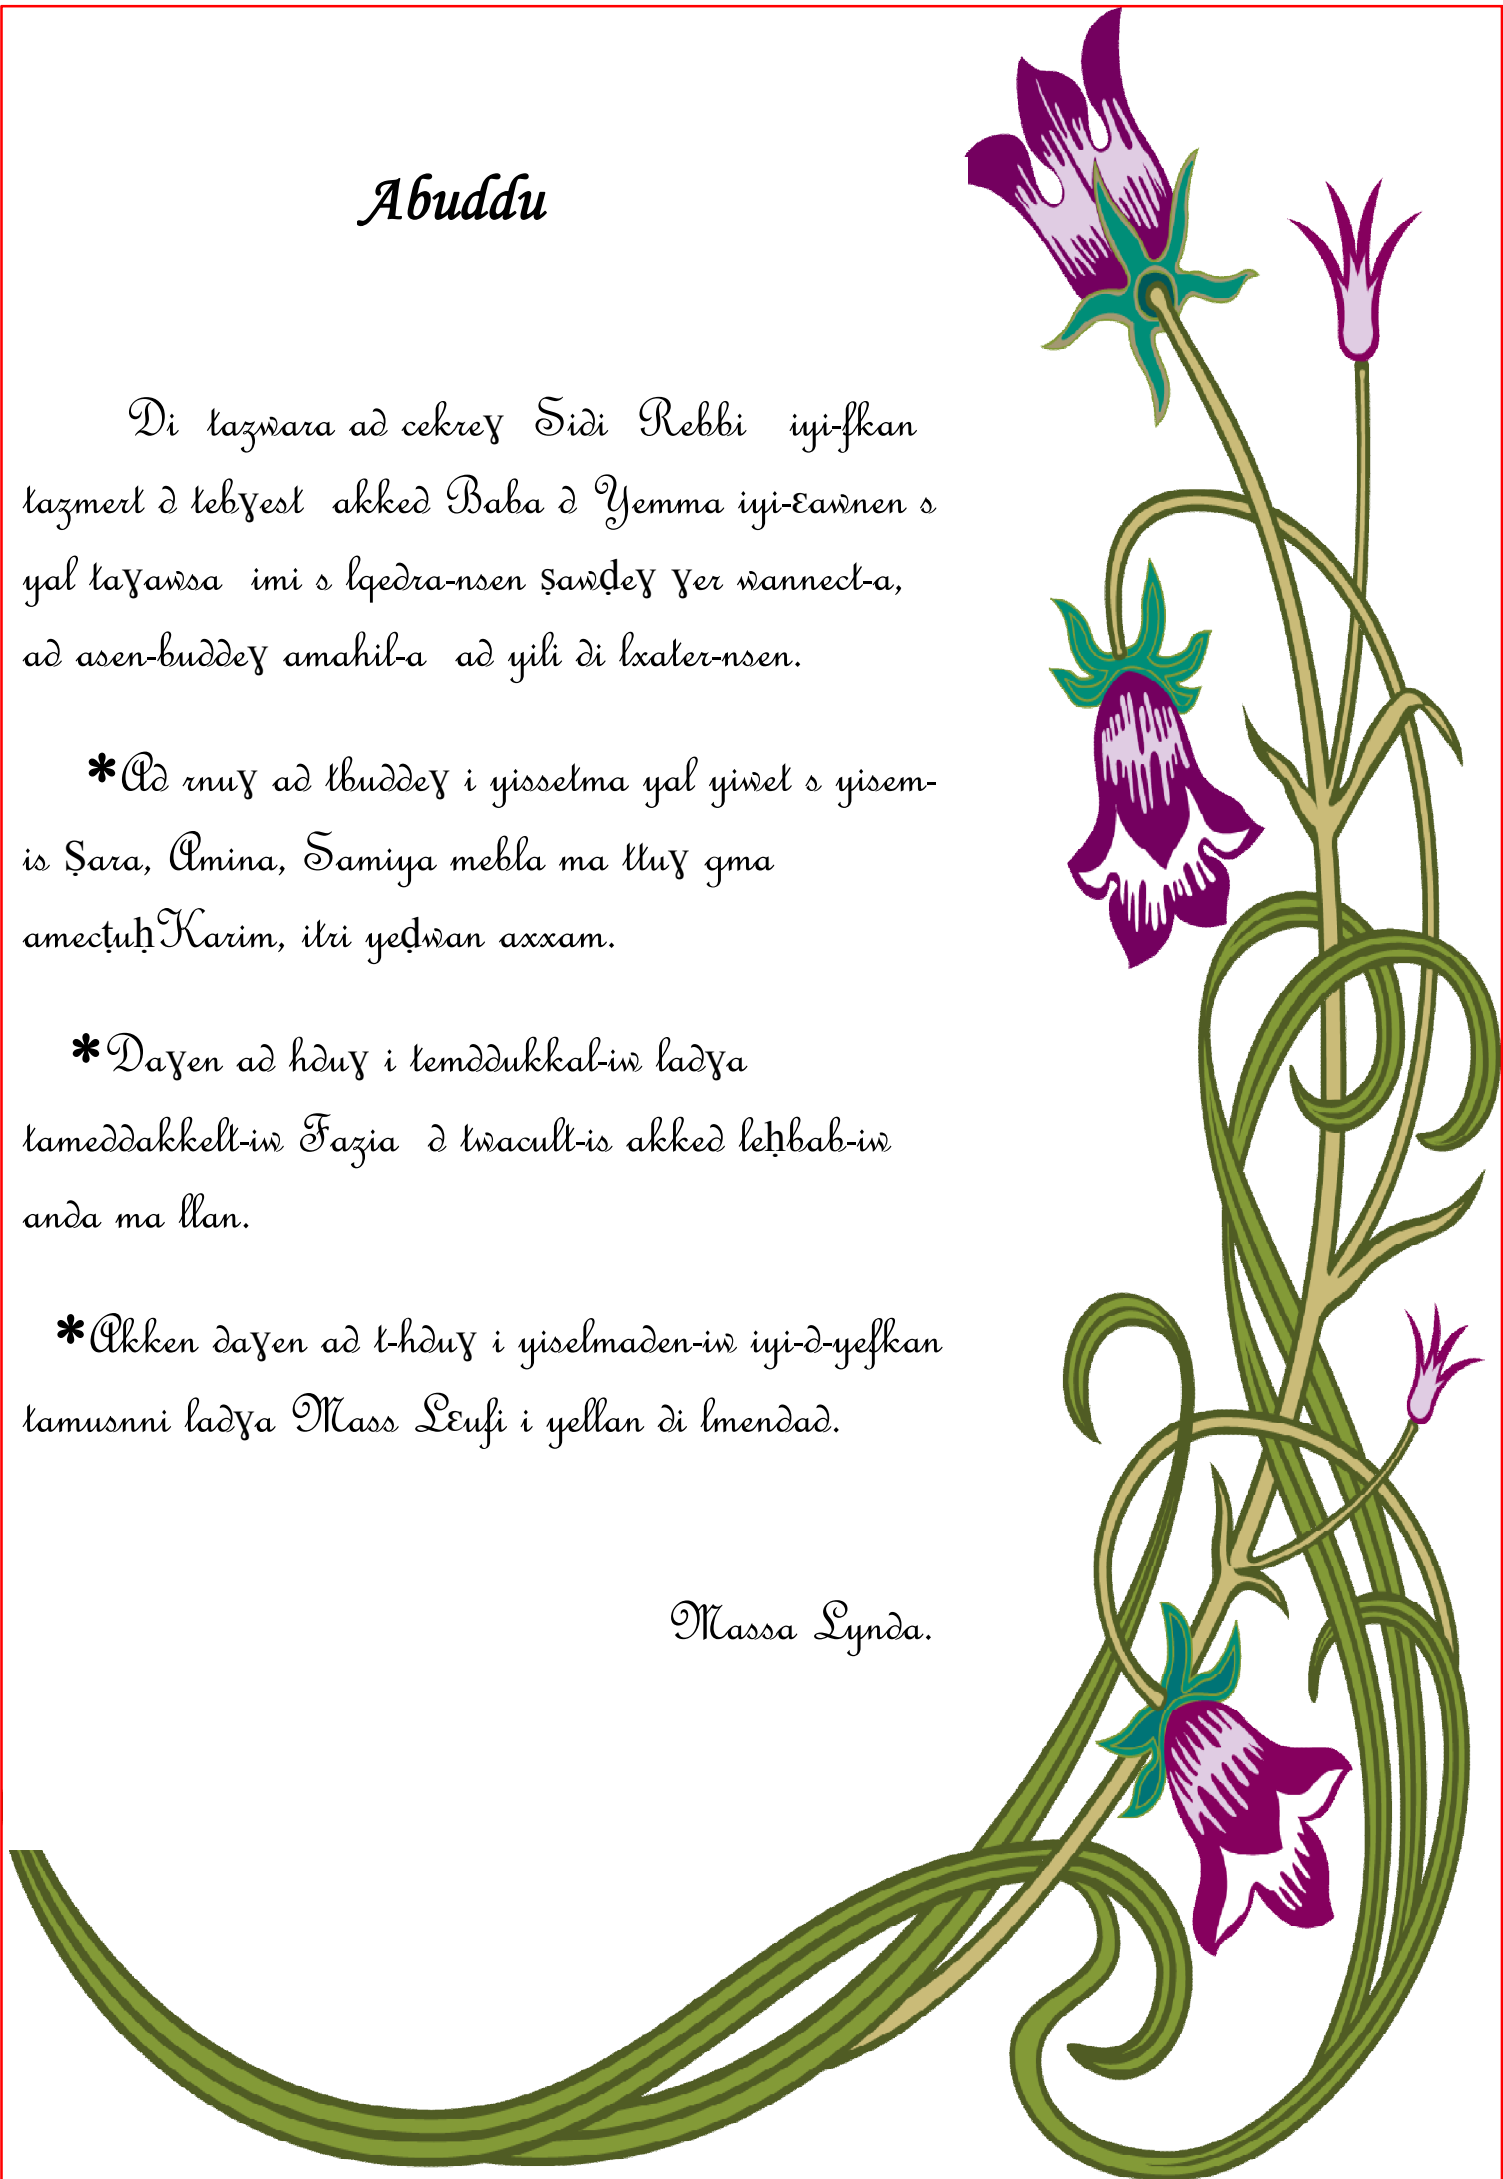 Abuddu
Di tazwara ad cekreɣ Sidi Rebbi iyi-fkan
tazmert d tebɣest akked Baba d Yemma iyi-ɛawnen s
yal taɣawsa imi s lqedra-nsen ṣawḍeɣ ɣer wannect-a,
ad asen-buddeɣ amahil-a ad yili di lxater-nsen.
*Ad rnuɣ ad tbuddeɣ i yissetma yal yiwet s yisem-
is Ṣara, Amina, Samiya mebla ma ttuɣ gma
amecṭuḥ Karim, itri yeḍwan axxam.
*Daɣen ad hduɣ i temddukkal-iw ladɣa
tameddakkelt-iw Fazia d twacult-is akked leḥbab-iw
anda ma llan.
*Akken daɣen ad t-hduɣ i yiselmaden-iw iyi-d-yefkan
tamusnni ladɣa Mass Lɛufi i yellan di lmendad.
Massa Lynda.